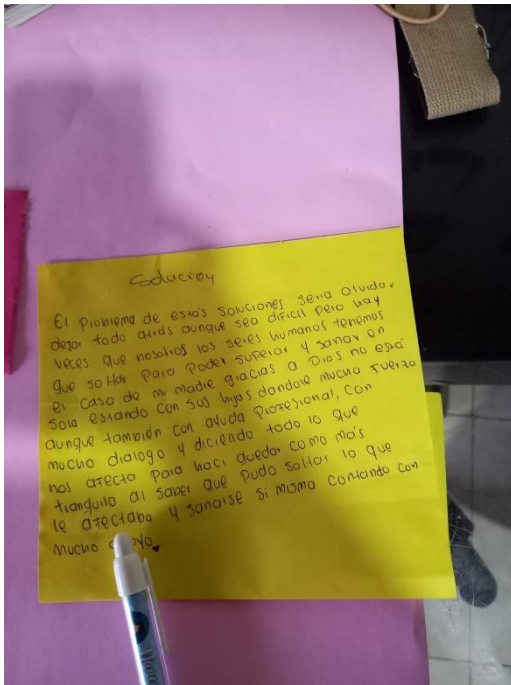 Solucion
El problema de estás soluciones seria olvidar,
dejar todo atrás aunque sea dificil pero hay
veces que nosotros los seres humanos tenemos
que soltar para poder superar y sanar en
el caso de mi madre gracias a Dios no está
sola estando con sus hijas dandole mucha fuerza
aunque también con ayuda profesional, con
mucho dialogo y diciendo todo lo que
nos afecta para haci quedar como más
tranquilo al saber que pudo soltar lo que
le afectaba y sanarse si misma contando con
mucho